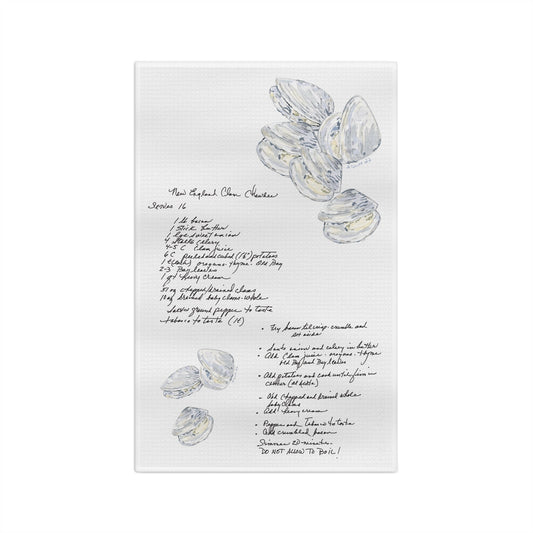 New England Clam Chowder
Serves 16
1 lb bacon
1 stick butter
1 lge sweet onion
4 stalks celery
4-5 C clam juice
6 C peeled and cubed (1/2") potatoes
1 t (each) oregano - thyme - Old Bay
2-3 Bay leaves
1 qt heavy cream
51 oz chopped/drained clams
10 oz drained baby clams - whole
ground pepper to taste
tabasco to taste (1t)
• Fry bacon til crisp - crumble and
set aside
• Sauté onion and celery in butter
• Add clam juice - oregano - thyme
Old Bay and Bay leaves
• Add potatoes and cook until firm in
center (al dente)
• Add chopped and drained whole
baby clams
• Add heavy cream
• Pepper and Tabasco to taste
• Add crumbled bacon
Simmer 20 minutes.
DO NOT ALLOW TO BOIL!